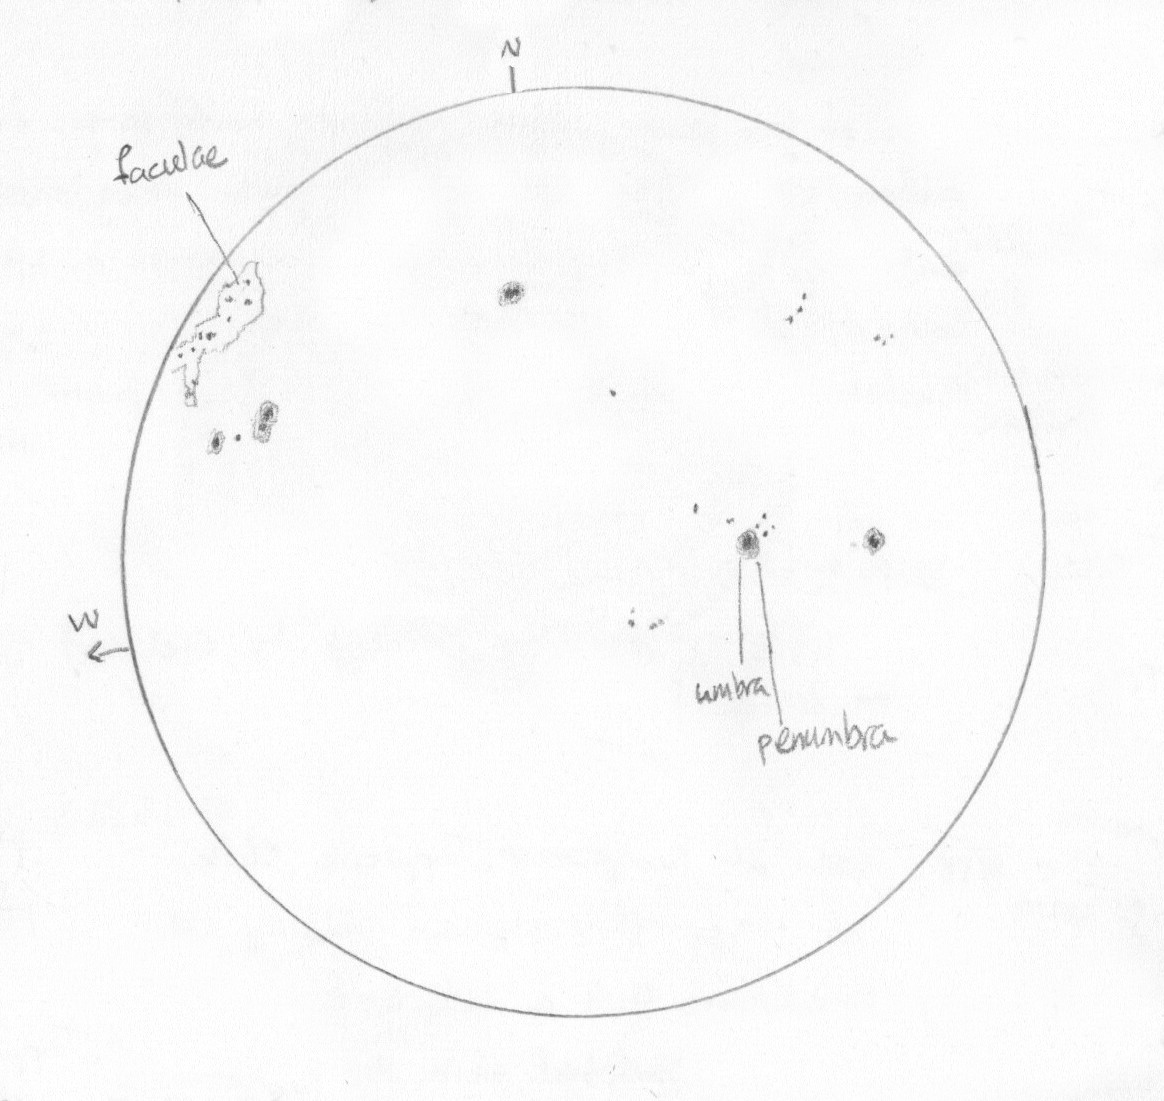 N
faculae
W
umbra
penumbra